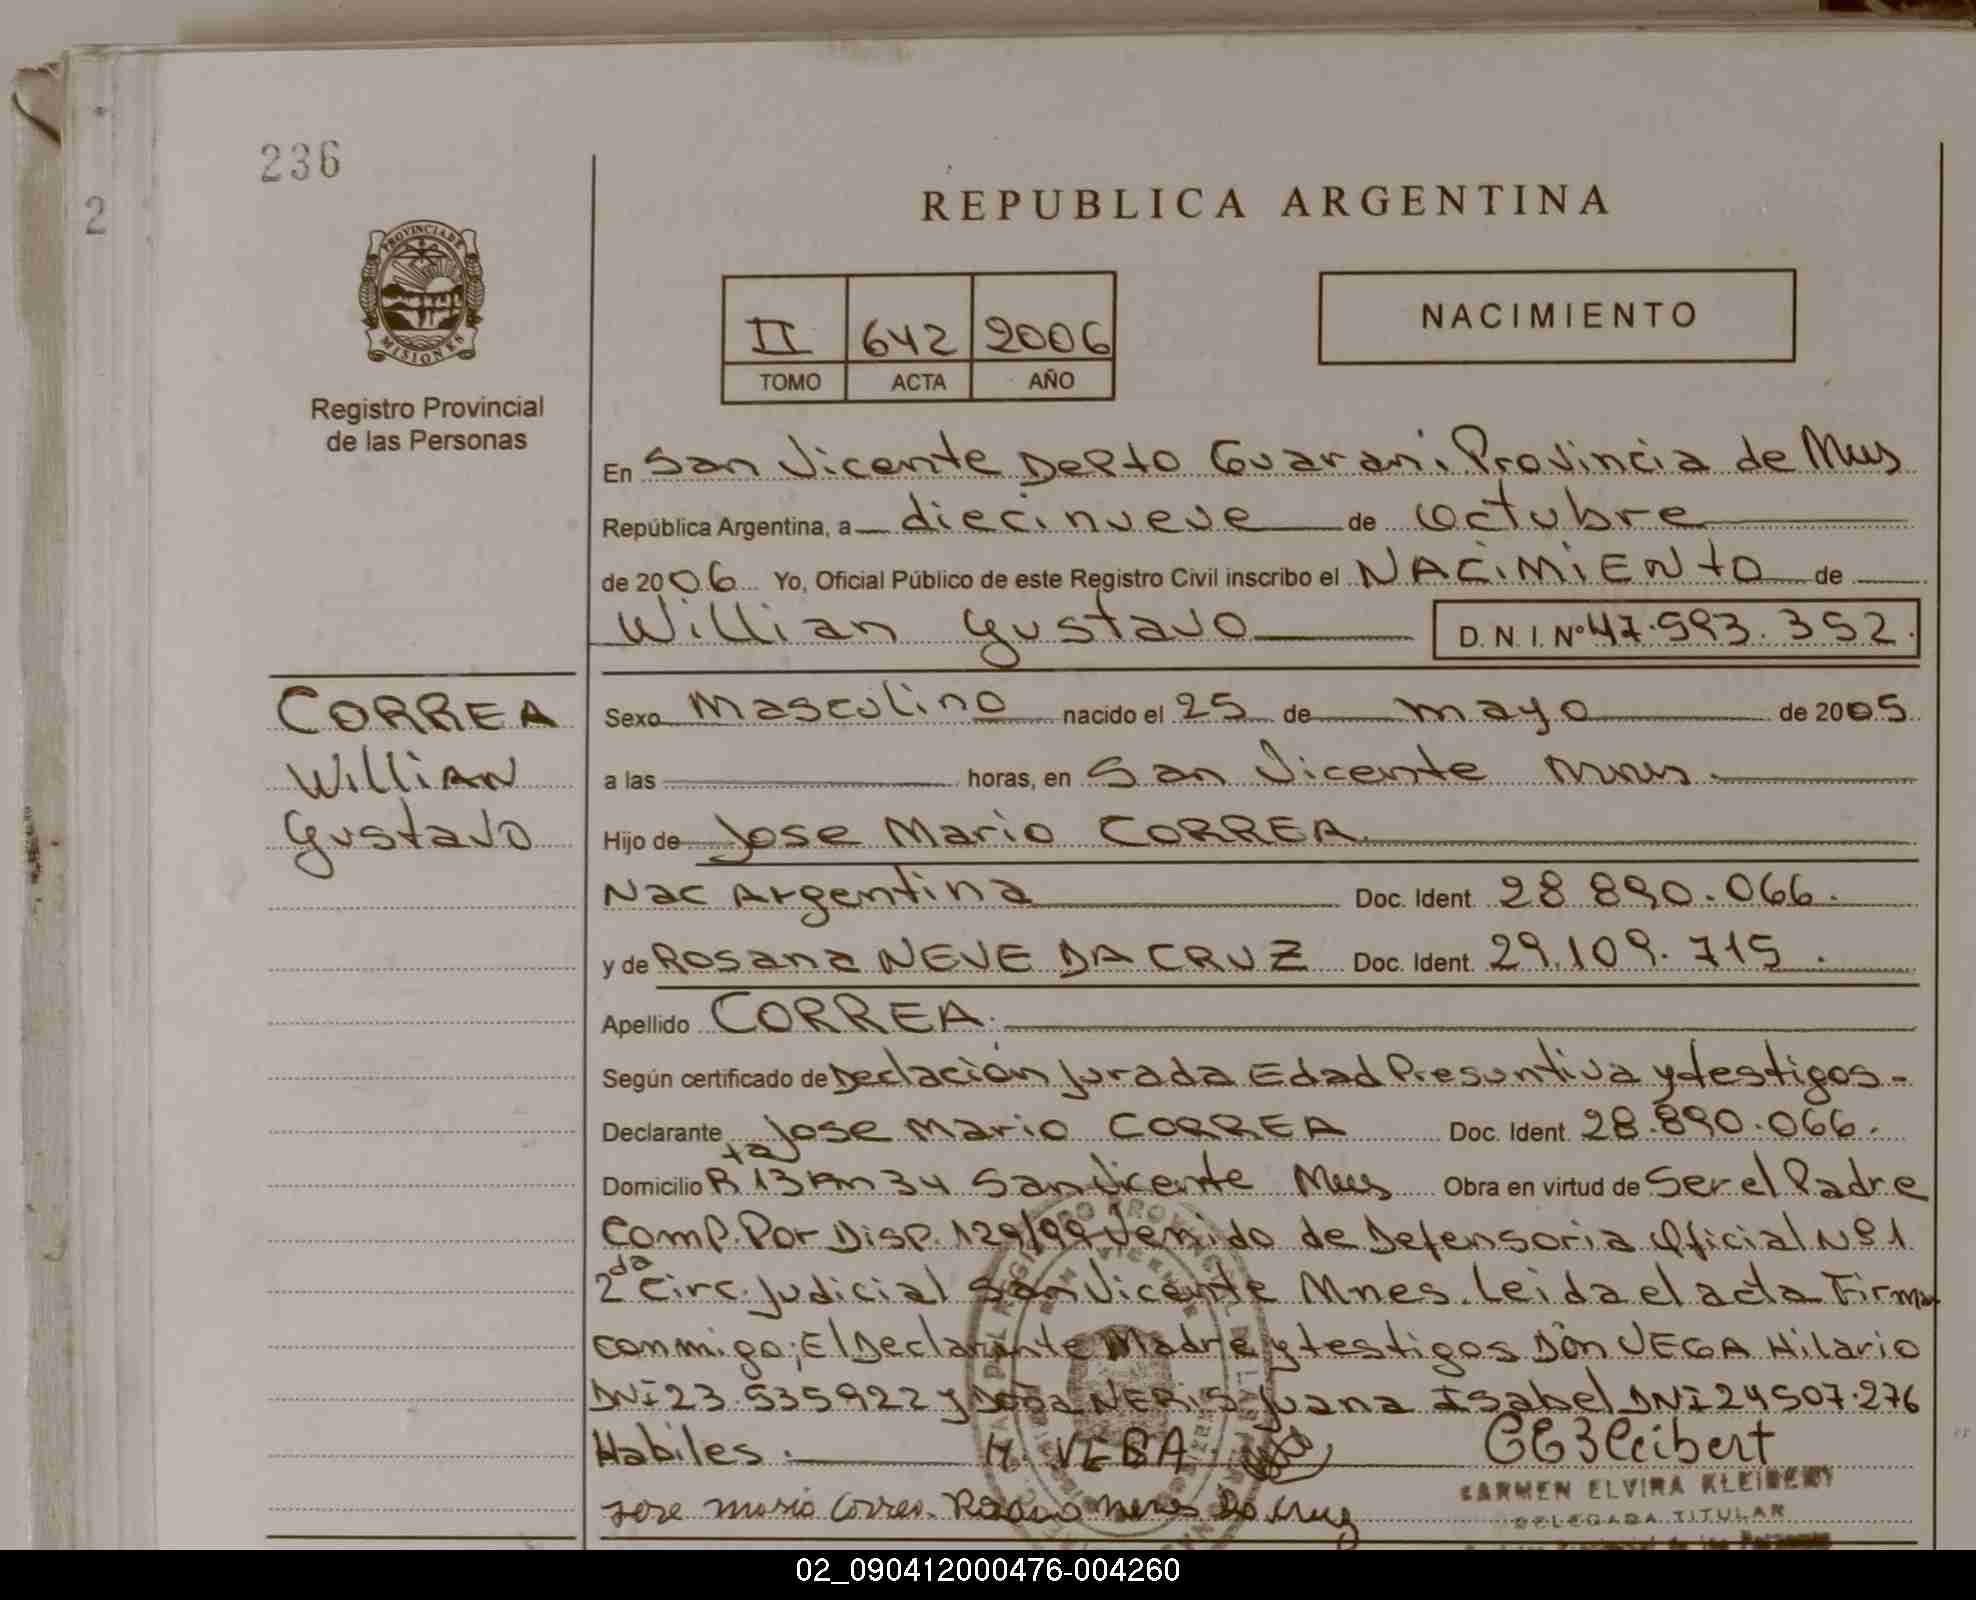 236
2
PROVINCIA DE
MISIONES
Registro Provincial
de las Personas
REPUBLICA ARGENTINA
II 642 2006
TOMO ACTA AÑO
NACIMIENTO
En San Vicente Depto Guarani Provincia de Mnes
República Argentina, a diecinueve de Octubre
de 2006 Yo, Oficial Público de este Registro Civil inscribo el NACIMIENTO de
Willian Gustavo D.N.I. Nº 47.593.352.
CORREA
Willian
Gustavo
Sexo Masculino nacido el 25 de mayo de 2005
a las horas, en San Vicente Mnes.
Hijo de Jose Mario CORREA
Nac Argentina Doc. Ident. 28 890.066.
y de Rosana NEVE DA CRUZ Doc. Ident. 29.109.715.
Apellido CORREA.
Según certificado de Declación Jurada Edad Presuntiva y testigos.
Declarante Jose Mario CORREA Doc. Ident. 28.890.066.
Domicilio Rta 13 Km 34 San Vicente Mnes Obra en virtud de Ser el Padre
Comp. Por Disp. 129/99 Venido de Defensoria Oficial Nº 1
2da Circ. Judicial San Vicente Mnes. Leida el acta Firma
conmigo; El Declarante Madre y testigos Don VEGA Hilario
DNI 23.535922 y Doña NERIS Juana Isabel DNI 24507.276
Habiles. H. VEGA
CARMEN ELVIRA KLEIBERT
DELEGADA TITULAR
Jose Mario Correa.
02_090412000476-004260